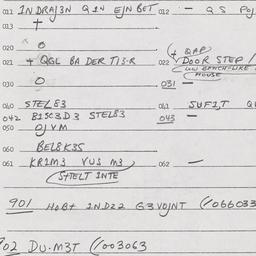 011 1NDRAJ3N Q1N EJN BET 012 — QS POJ
013 +
020 O + QAP
021 + QGL BA DER TI3-R 022 DOOR STEP /
HOUSE
030 O 031 —
040 STELE3 041 SUFI,T
042 B1SC3D3 STELE3 043 —
050 OJVM
060 BELBK3S
061 KR1M3 VUS M3 062 —
STELT INTE
901 HOB+ 1ND22 G3VOJNT (/066033
902 DU.M3T (/003063